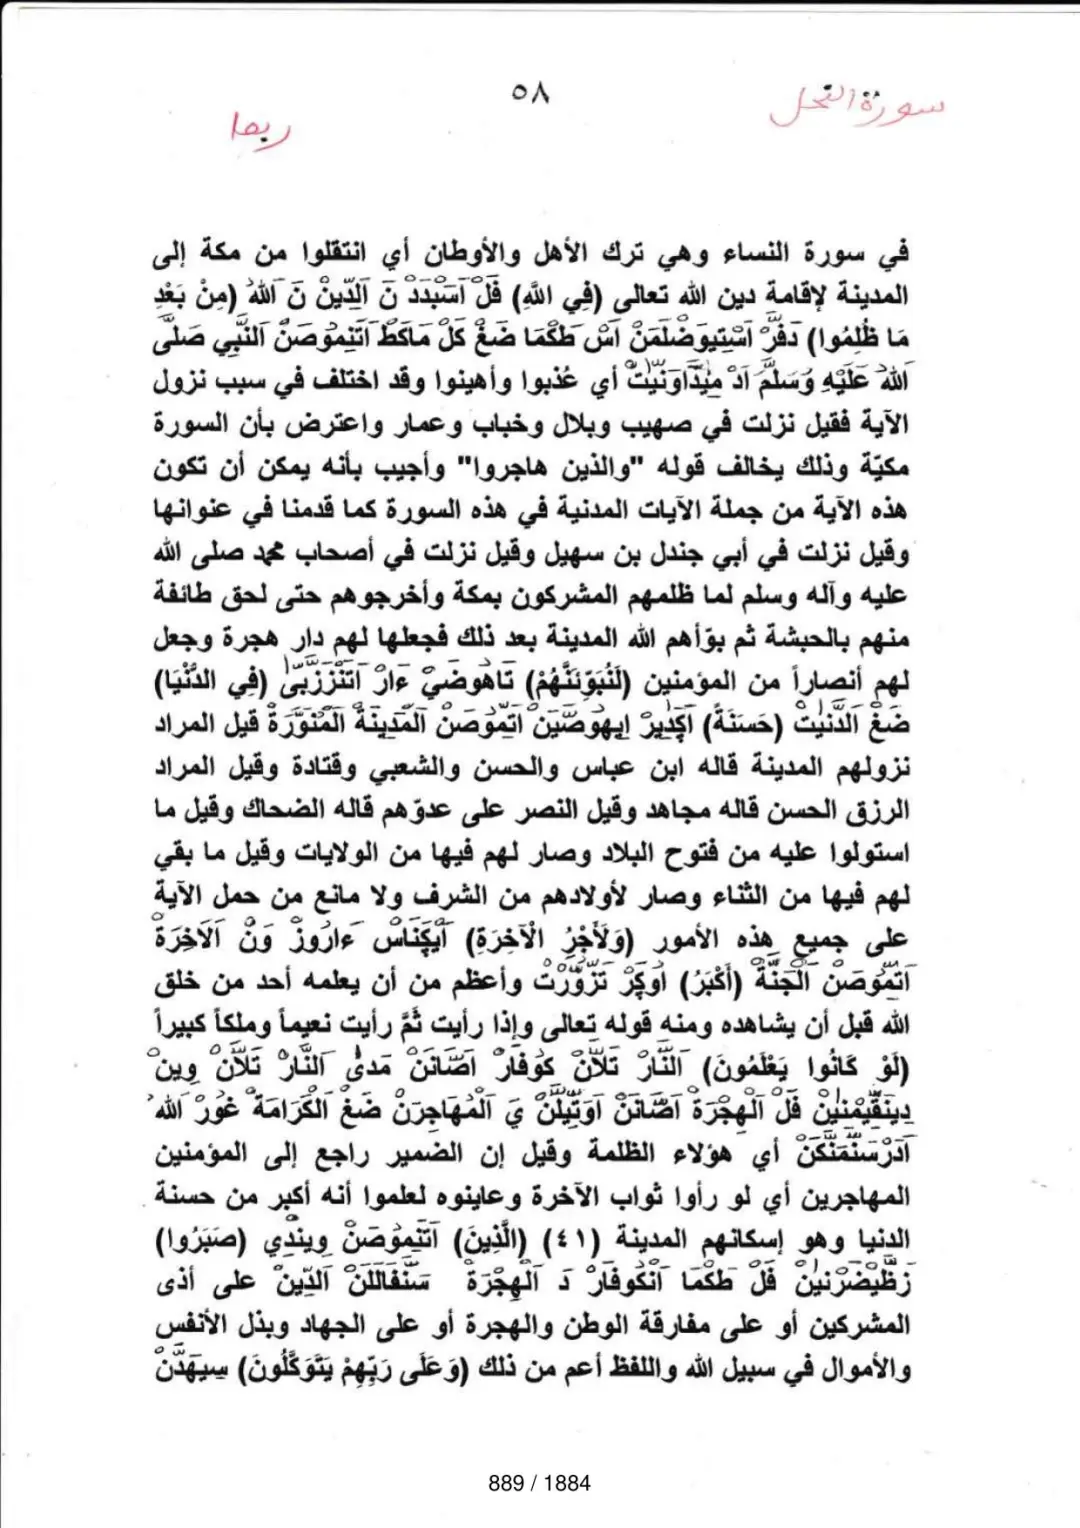 ٥٨
سورة النحل
ربما
في سورة النساء وهي ترك الأهل والأوطان أي انتقلوا من مكة إلى
المدينة لإقامة دين الله تعالى (فِي اللَّهِ) فَلْ اَسْبْدَدْ نَ اَلدِّينْ نَ اَللهْ (مِنْ بَعْدِ
مَا ظُلِمُوا) دَفَّرْ اَسْتِيوَضْلَمَنْ اَسْ طَكْمَا ضَغْ كَلْ مَاكَطْ اَتَنِمُوصَنْ اَلنَّبِي صَلَّى
اَللهُ عَلَيْهِ وَسَلَّمَ اَدْ مِيْدَاوَنَيَتْ أي عُذبوا وأهينوا وقد اختلف في سبب نزول
الآية فقيل نزلت في صهيب وبلال وخباب وعمار واعترض بأن السورة
مكيّة وذلك يخالف قوله "والذين هاجروا" وأجيب بأنه يمكن أن تكون
هذه الآية من جملة الآيات المدنية في هذه السورة كما قدمنا في عنوانها
وقيل نزلت في أبي جندل بن سهيل وقيل نزلت في أصحاب محمد صلى الله
عليه وآله وسلم لما ظلمهم المشركون بمكة وأخرجوهم حتى لحق طائفة
منهم بالحبشة ثم بوّأهم الله المدينة بعد ذلك فجعلها لهم دار هجرة وجعل
لهم أنصاراً من المؤمنين (لَنُبَوِّئَنَّهُمْ) تَاهُوضَيْ ءَارْ اَتَنْزَزَّبَّى (فِي الدُّنْيَا)
ضَغْ اَلدُّنْيَتْ (حَسَنَةً) اَكَدِيرْ اِيهُوصَيَنْ اَتِمُّوصَنْ اَلْمَدِينَةْ اَلْمُنَوَّرَةْ قيل المراد
نزولهم المدينة قاله ابن عباس والحسن والشعبي وقتادة وقيل المراد
الرزق الحسن قاله مجاهد وقيل النصر على عدوّهم قاله الضحاك وقيل ما
استولوا عليه من فتوح البلاد وصار لهم فيها من الولايات وقيل ما بقي
لهم فيها من الثناء وصار لأولادهم من الشرف ولا مانع من حمل الآية
على جميع هذه الأمور (وَلَأَجْرُ الْآخِرَةِ) اَيْكِنَاسْ ءَارُوزْ وَنْ اَلَاخِرَةْ
اَتِمُّوصَنْ اَلْجَنَّةْ (أَكْبَرُ) اُوكَرْ تَزُّورْتْ وأعظم من أن يعلمه أحد من خلق
الله قبل أن يشاهده ومنه قوله تعالى وإذا رأيت ثَمَّ رأيت نعيماً وملكاً كبيراً
(لَوْ كَانُوا يَعْلَمُونَ) اَلنَّارْ تَلَّانْ كُوفَارْ اَصَّانَنْ مَدَى اَلنَّارْ تَلَّانْ وِينْ
دِينَقِيمْنِينْ فَلْ اَلْهِجْرَةْ اَصَّانَنْ اَوَتِيلَنْ يَ اَلْمُهَاجِرَنْ ضَغْ اَلْكَرَامَةْ غُورْ اَللهْ
اَدَرْسَنَمَنَّكَنْ أي هؤلاء الظلمة وقيل إن الضمير راجع إلى المؤمنين
المهاجرين أي لو رأوا ثواب الآخرة وعاينوه لعلموا أنه أكبر من حسنة
الدنيا وهو إسكانهم المدينة (٤١) (الَّذِينَ) اَتَنِمُوصَنْ وِينْدِي (صَبَرُوا)
زَظَّيْضَرْنِينْ فَلْ طَكْمَا اَنْكُوفَارْ دَ اَلْهِجْرَةْ سَنْفَالَلَنْ اَلدِّينْ على أذى
المشركين أو على مفارقة الوطن والهجرة أو على الجهاد وبذل الأنفس
والأموال في سبيل الله واللفظ أعم من ذلك (وَعَلَى رَبِّهِمْ يَتَوَكَّلُونَ) سِيهَدَّنْ
889 / 1884